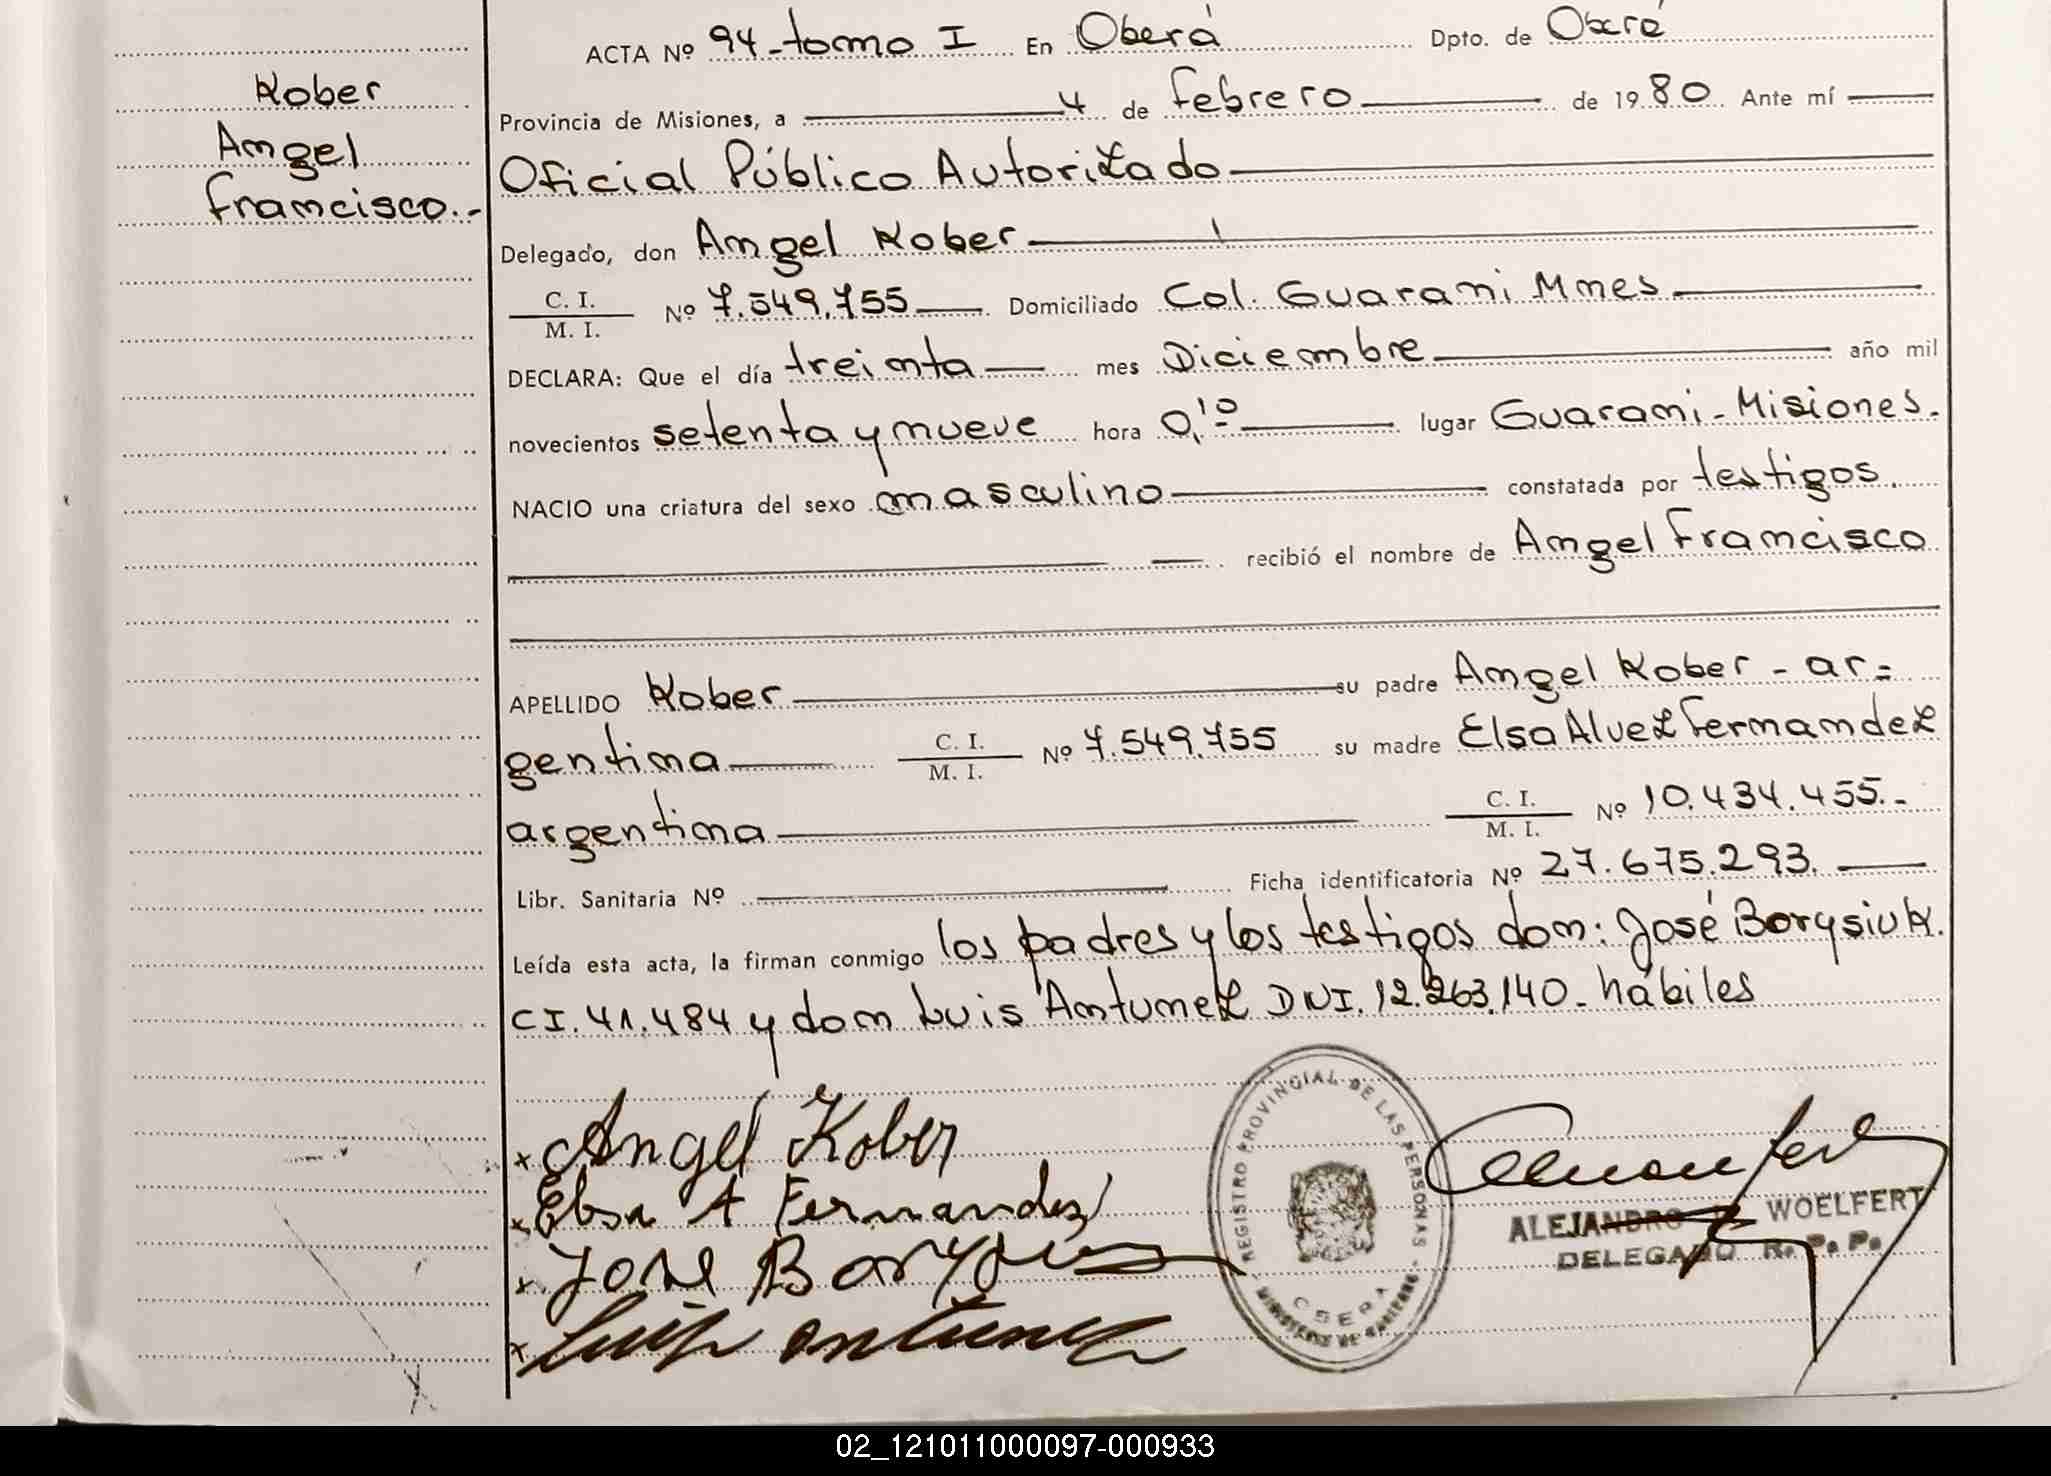 ACTA Nº 94-tomo I En Oberá Dpto. de Oberá
Kober
Angel
Francisco.-
Provincia de Misiones, a 4 de febrero de 1980 Ante mí
Oficial Público Autorizado
Delegado, don Angel Kober
C. I.
M. I.
Nº 7.549.755 Domiciliado Col. Guarani Mnes
DECLARA: Que el día treinta mes Diciembre año mil
novecientos setenta y nueve hora 0,10 lugar Guarani-Misiones.
NACIO una criatura del sexo masculino constatada por testigos.
recibió el nombre de Angel Francisco
APELLIDO Kober su padre Angel Kober - ar=
gentina C. I. M. I. Nº 7.549.755 su madre Elsa Alvez Fernandez
argentina C. I. M. I. Nº 10.434.455.-
Libr. Sanitaria Nº Ficha identificatoria Nº 27.675.293.
Leída esta acta, la firman conmigo los padres y los testigos don: José Borysiuk.
CI. 41.484 y don Luis Antunez DNI. 12.263.140- hábiles
x Angel Kober
x Elsa A Fernandez
x Jose
x Luis Antunez
REGISTRO PROVINCIAL DE LAS PERSONAS
OBERA
ALEJANDRO WOELFERT
DELEGADO R. P. P.
02_121011000097-000933